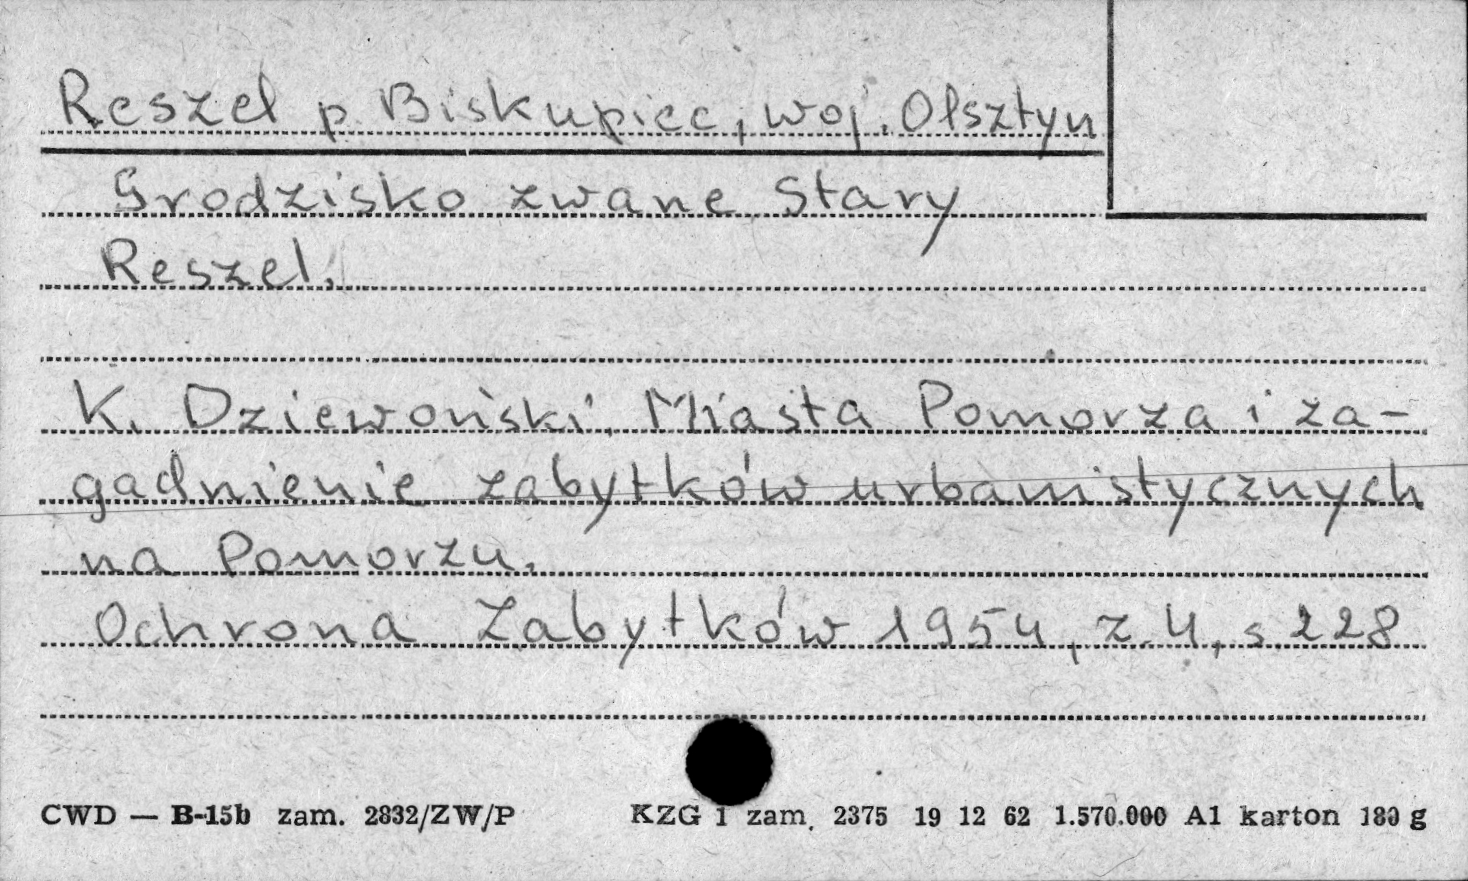 Reszel p. Biskupiec, woj. Olsztyn
Grodzisko zwane Stary
Reszel.
K. Dziewoński, Miasta Pomorza i za-
gadnienie zabytków urbanistycznych
na Pomorzu.
Ochrona Zabytków 1954, z. 4, s. 228
CWD — B-15b zam. 2832/ZW/P KZG 1 zam. 2375 19 12 62 1.570.000 A1 karton 180 g